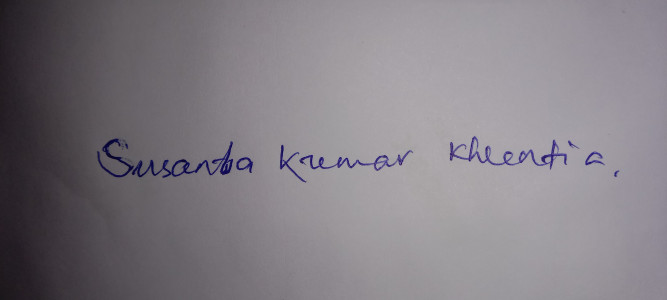 Susanta Kumar Khuntia.